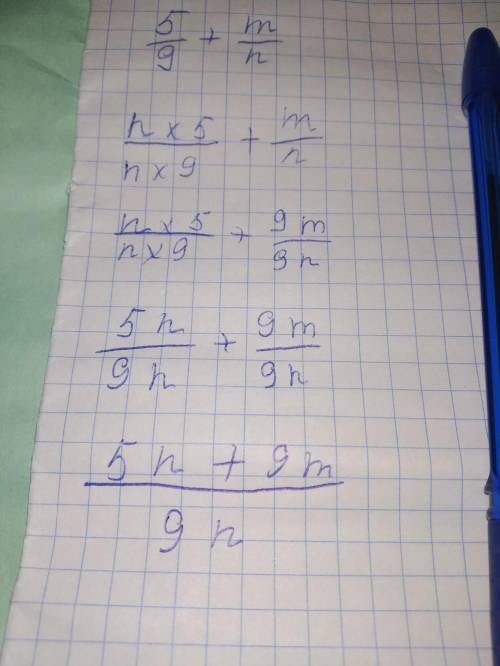 5/9 + m/n
n × 5/n × 9 + m/n
n × 5/n × 9 + 9m/9n
5n/9n + 9m/9n
5n + 9m/9n